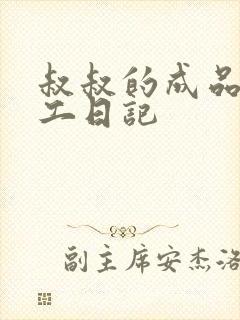 叔叔的成品
工日記
副主席安杰洛